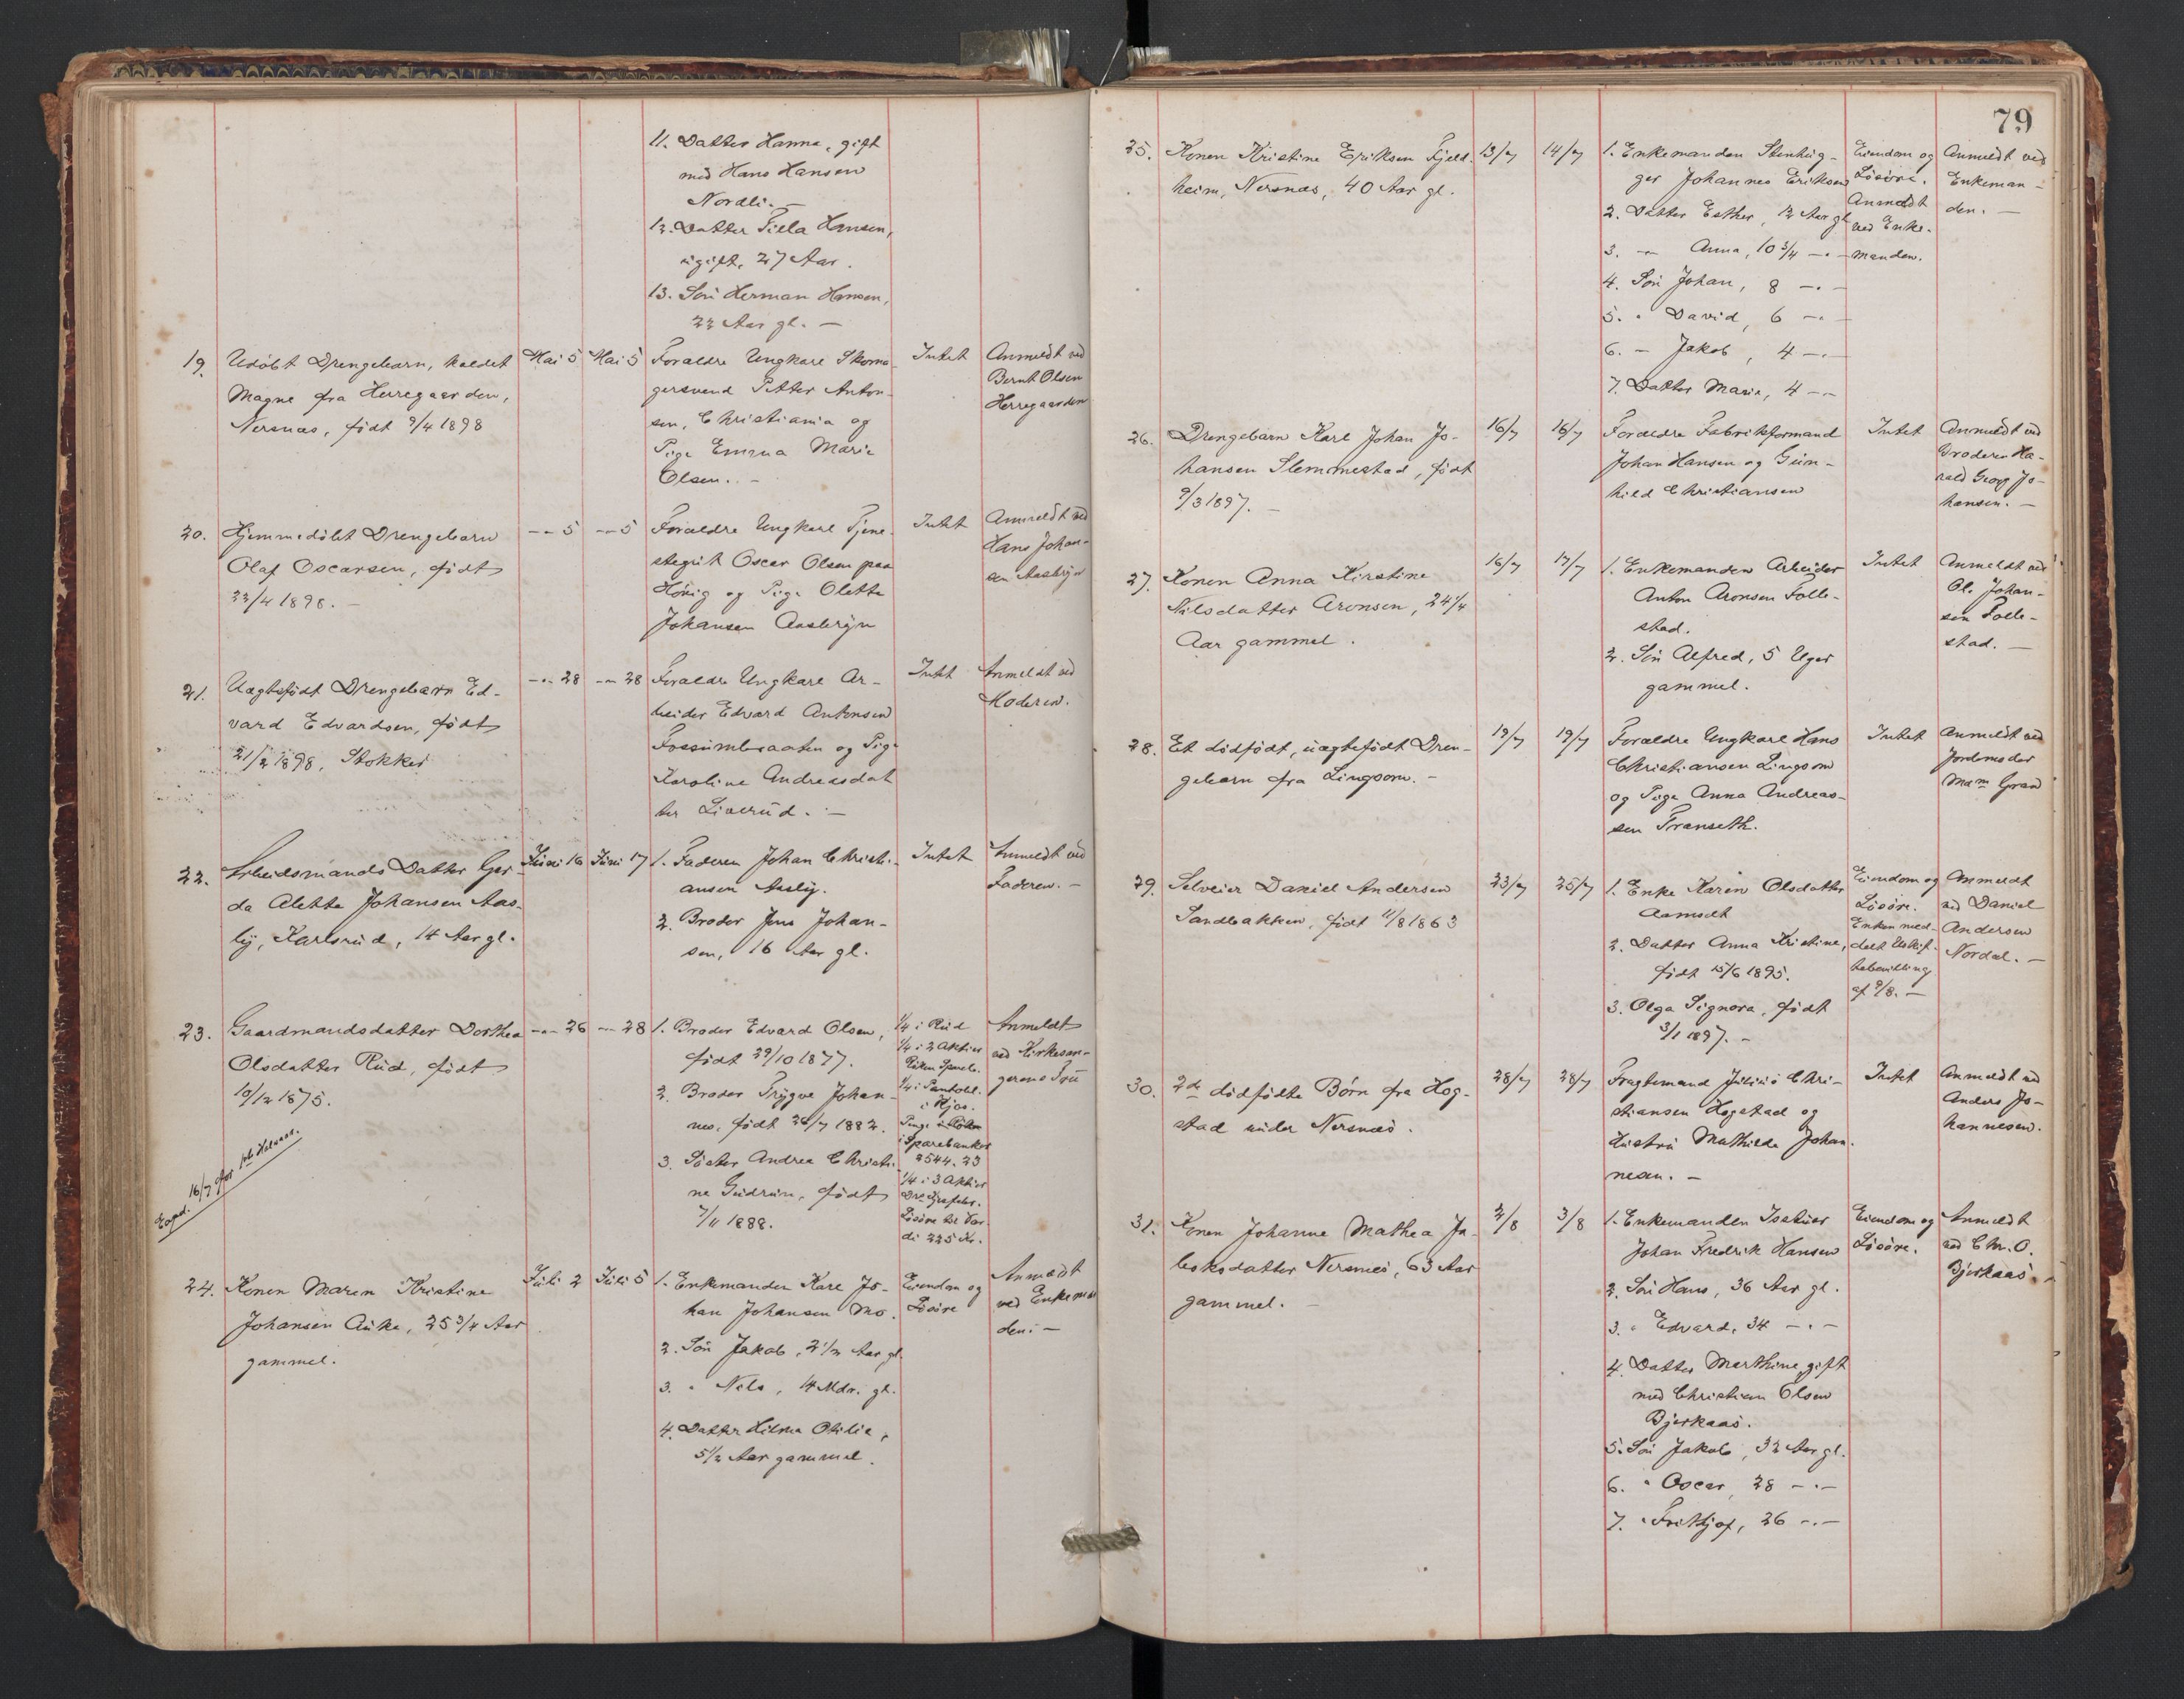 11. Datter Hanna, gift
med Hans Hansen
Nordli. —
12. Datter Tilla Hansen,
ugift, 27 Aar.
13. Søn Herman Hansen,
22 Aar gl. —
19. Udøbt Drengebarn, kaldet
Magne fra Herregaarden,
Nersnæs, født 9/4 1898
Mai 5
Mai 5
Forældre Ungkarl Skoma-
gersvend Petter Anton-
sen, Christiania og
Pige Emma Marie
Olsen. —
Intet
Anmeldt ved
Bernt Olsen
Herregaarden
20. Hjemmedøbt Drengebarn
Olaf Oscarsen, født
22/4 1898. —
—„— 5
—„— 5
Forældre Ungkarl Tjene-
stegut Oscar Olsen paa
Høvig og Pige Olette
Johansen Aasbryn
Intet
Anmeldt ved
Hans Johan-
sen Aasbryn
21. Uægtefødt Drengebarn Ed-
vard Edvardsen, født
21/2 1898, Stokker
—„— 28
—„— 28
Forældre Ungkarl Ar-
beider Edvard Antonsen
Fossumbraaten og Pige
Karoline Andreasdat
ter Liverud. —
Intet
Anmeldt ved
Moderen.
22. Arbeidsmands Datter Ger-
da Alette Johansen Aas-
ly, Karlsrud, 14 Aar gl.
Juni 16
Juni 17
1. Faderen Johan Christi-
ansen Aasly.
2. Broder Jens Johan-
sen, 16 Aar gl.
Intet
Anmeldt ved
Faderen. —
23. Gaardmandsdatter Dorthea
Olsdatter Rud, født
10/12 1875.
16/7 for
—„— 26
—„— 28
1. Broder Edvard Olsen,
født 29/10 1877.
2. Broder Trygve Johan-
nes, født 26/7 1882.
3. Søster Andrea Christi-
ne Gudrun, født
7/11 1888.
1/4 i Rud
1/4 i 2 Aktier
Røken Spareb.
1/4 i
i
Penge i Røken
Sparebanker
2544.23
1/4 i 3 Aktier
Løsøre til Vær-
di 225 Kr.
Anmeldt
ved Kirkesan-
gerens Fru
24. Konen Maren Kristine
Johansen Auke, 25 3/4 Aar
gammel.
Juli 2
Juli 5
1. Enkemanden Karl Jo-
han Johansen Mo.
2. Søn Jakob, 2 1/2 Aar gl.
3. „ Nils, 14 Mdr. gl.
4. Datter Hilma Otilie,
5 1/2 Aar gammel.
Eiendom og
Løsøre
Anmeldt
ved Enkeman
den. —
79
25. Konen Kristine Eriksen Fjeld-
heim, Nersnæs, 40 Aar gl.
13/7
14/7
1. Enkemanden Stenhug-
ger Johannes Eriksen
2. Datter Esther, 12 Aar gl
3. —„— Anna, 10 3/4 —„—
4. Søn Johan, 8 —„—
5. „ David, 6 —„—
6. — Jakob, 4 —„—
7. Datter Marie, 4 —„—
Eiendom og
Løsøre.
Anmeldt
ved Enke-
manden.
Anmeldt ved
Enkeman-
den. —
26. Drengebarn Karl Johan Jo-
hansen Slemmestad, født
9/3 1897. —
16/7
16/7
Forældre Fabrikformand
Johan Hansen og Gun-
hild Christiansen
Intet
Anmeldt ved
Broderen Ha-
rald Georg Jo-
hansen. —
27. Konen Anna Kirstine
Nilsdatter Aronsen, 24 1/4
Aar gammel.
16/7
17/7
1. Enkemanden Arbeider
Anton Aronsen Folle-
stad.
2. Søn Alfred, 5 Uger
gammel.
Intet
Anmeldt ved
Ol. Johan-
sen Folle-
stad. —
28. Et dødfødt, uægtefødt Dren-
gebarn fra Lingsom. —
19/7
19/7
Forældre Ungkarl Hans
Christiansen Lingsom
og Pige Anna Andreas-
sen Franseth.
Intet
Anmeldt ved
Jordemoder
Mam Gran
29. Selveier Daniel Andersen
Sandbakken, født 11/8 1863
23/7
25/7
1. Enke Karen Olsdatter
Aamodt
2. Datter Anna Kristine,
født 15/6 1895.
3. Olga Signora, født
3/1 1897. —
Eiendom og
Løsøre.
Enken med-
delt Uskif-
tebevilling
af 9/8. —
Anmeldt
ved Daniel
Andersen
Nordal. —
30. 2de dødfødte Børn fra Hog-
stad under Nersnæs.
28/7
28/7
Fragtemand Julius Chri-
stiansen Hogstad og
Hustru Mathilde Johan-
nesen. —
Intet
Anmeldt ved
Anders Jo-
hannesen.
31. Konen Johanne Mathea Ja-
kobsdatter Nersnæs, 63 Aar
gammel. —
2/8
3/8
1. Enkemanden Isskuer
Johan Fredrik Hansen
2. Søn Hans, 36 Aar gl.
3. „ Edvard, 34 —„—
4. Datter Marthine, gift
med Christian Olsen
Bjerkaas.
5. Søn Jakob, 32 Aar gl.
6. „ Oscar, 28 —„—
7. „ Frithjof, 26 —„—
Eiendom og
Løsøre.
Anmeldt
ved Chr. O.
Bjerkaas. —